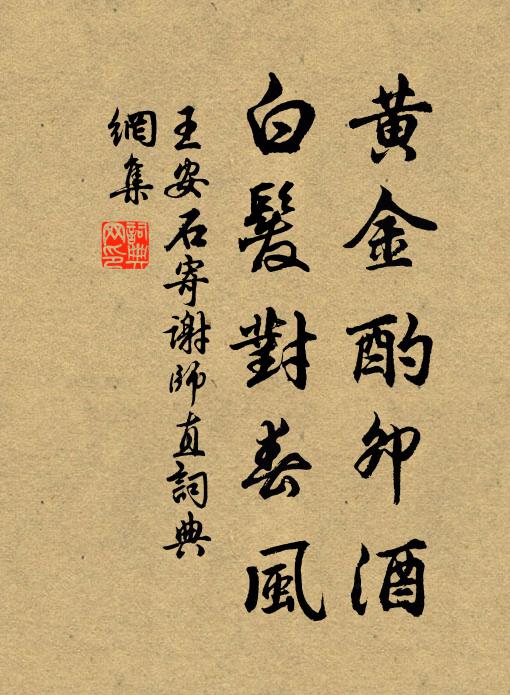 黄金酌卯酒
白髮對春風
王安石寄謝師直詞典
網集
詞典
网印